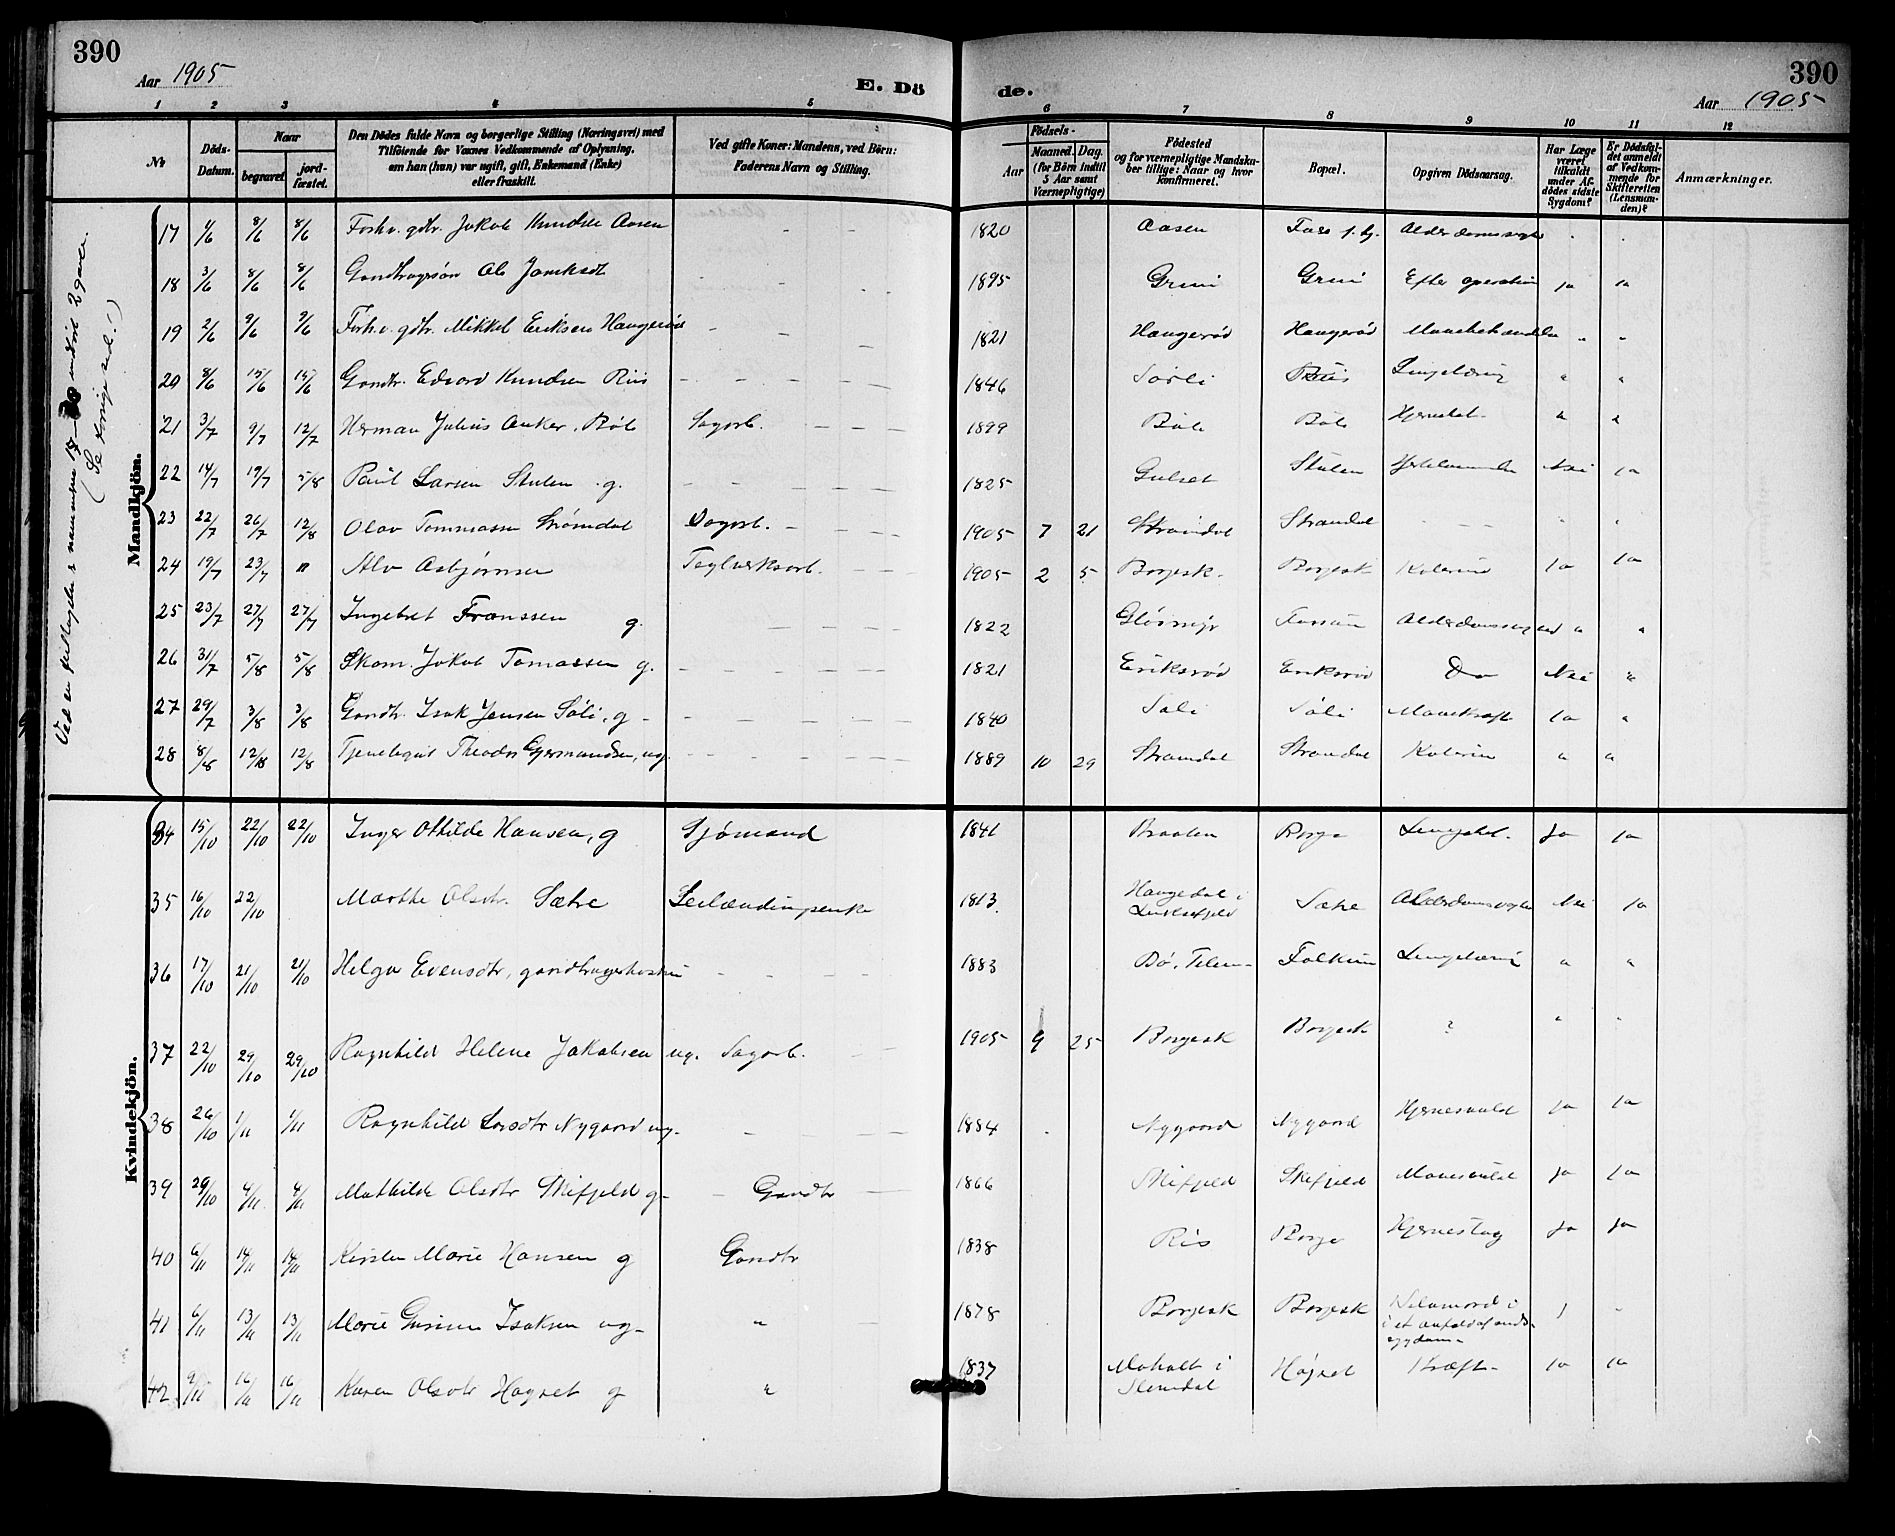 390
Aar 1905
E. Dö
1 2 3 4 5
No
Döds-Datum.
Naar
begravet.
jord-fæstet.
Den Dödes fulde Navn og borgerlige Stilling (Næringsvei) med Tilföiende for Voxnes Vedkommende af Oplysning, om han (hun) var ugift, gift, Enkemand (Enke) eller fraskilt.
Ved gifte Koner: Mandens, ved Börn: Faderens Navn og Stilling.
de.
390
Aar 1905
6 7 8 9 10 11 12
Födsels-
Aar
Maaned. Dag.
(for Börn indtil 5 Aar samt Værnepligtige)
Födested og for værnepligtige Mandskaber tillige: Naar og hvor konfirmeret.
Bopæl.
Opgiven Dödsaarsag.
Har Læge været tilkaldt under Afdödes sidste Sygdom?
Er Dödsfaldet anmeldt af Vedkommende for Skifteretten (Lensmanden)?
Anmærkninger.
Ved en feiltagelse er nummerne 17 – 20 indført 2 gave.
(Se forrige sid.)
Mandkjön.
17 1/6 8/6 8/6 Forhv. gdr. Jakob Knudsen Aasen 1820 Aasen Alderdomssvaghed
18 3/6 8/6 8/6 Gaardbrugersøn Ole 1895 Grini Grini Efter operation ja ja
19 2/6 9/6 9/6 Forhv. gdr. Mikkel Eriksen Haugerød 1821 Haugerød Haugerød " "
20 8/6 15/6 15/6 Gaardbr. Edvard Knudsen Riis 1846 Sørli Riis " "
21 3/7 9/7 12/7 Herman Julius Anker. Bøle Sagarb. 1899 Bøle Bøle " "
22 14/7 19/7 5/8 Paul Larsen Stulen g. 1825 Gulset Stulen Nei ja
23 22/7 26/7 12/8 Olav Tommassen Strømdal Dagarb. 1905 7 21 Strømdal Strømdal " "
24 19/7 23/7 " Alv Asbjørnsen Teglverksarb. 1905 2 5 Borgesk. Borgesk Kolerine Ja Ja
25 23/7 27/7 27/7 Ingebret Franssen g. 1822 Fossum Alderdomssvaghed " "
26 31/7 5/8 5/8 Skom. Jakob Tomassen g. 1821 Eriksrød Eriksrød Do Nei "
27 29/7 3/8 3/8 Gaardbr. Isak Jensen Søli, g 1840 Søli Søli Mavekræft Ja "
28 8/8 12/8 12/8 Tjenestegut Theodor Gjermundsen, ug. 1889 10 29 Strømdal Strømdal Kolerine " "
Kvindekjön.
34 15/10 22/10 22/10 Inger Othilde Hansen, g Sjømand 1841 Braaten Borge Ja ja
35 16/10 22/10 Marthe Olsdtr. Sætre Leilændingenke 1813 Haugedal i Luksefjeld Sætre Alderdomssvaghed Nei ja
36 17/10 21/10 21/10 Helga Evensdtr, gaardbrugerhustru 1883 Bø. Telem– Falkum " "
37 22/10 29/10 29/10 Ragnhild Helene Jakobsen ug. Sagarb. 1905 9 25 Borgesk Borgesk ? " "
38 26/10 1/11 1/11 Ragnhild Larsdtr Nygaard ug. 1854 Nygaard Nygaard ja ja
39 29/10 4/11 4/11 Mathilde Olsdtr Skifjeld g– Gaardbr 1866 Skifjeld Skifjeld ja ja
40 6/11 14/11 14/11 Kirsten Marie Hansen g Gaardbr 1838 Ris Borge Hjerneslag ja ja
41 6/11 13/11 13/11 Marie Gurine Isaksen ug– " 1878 Borgesk Borgesk Selvmord i et anfald af sindssygdom
42 9/11 16/11 16/11 Karen Olsdtr Høgset g " 1837 Moholt i Slemdal Høgset Kræft– ja ja